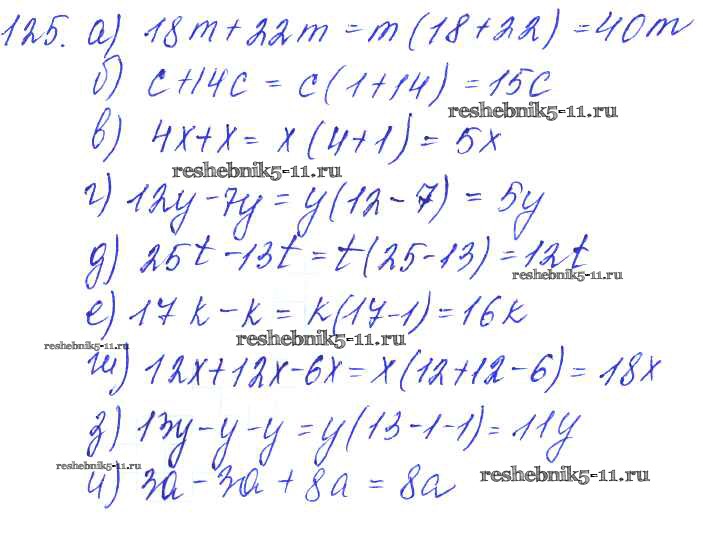 125. а) 18m + 22m = m (18 + 22) = 40m
б) c + 14c = c (1 + 14) = 15c
reshebnik5-11.ru
в) 4x + x = x (4 + 1) = 5x
reshebnik5-11.ru
г) 12y - 7y = y (12 - 7) = 5y
д) 25t - 13t = t (25 - 13) = 12t
reshebnik5-11.ru
е) 17k - k = k (17 - 1) = 16k
reshebnik5-11.ru
reshebnik5-11.ru
ж) 12x + 12x - 6x = x (12 + 12 - 6) = 18x
з) 13y - y - y = y (13 - 1 - 1) = 11y
reshebnik5-11.ru
и) 3a - 3a + 8a = 8a
reshebnik5-11.ru